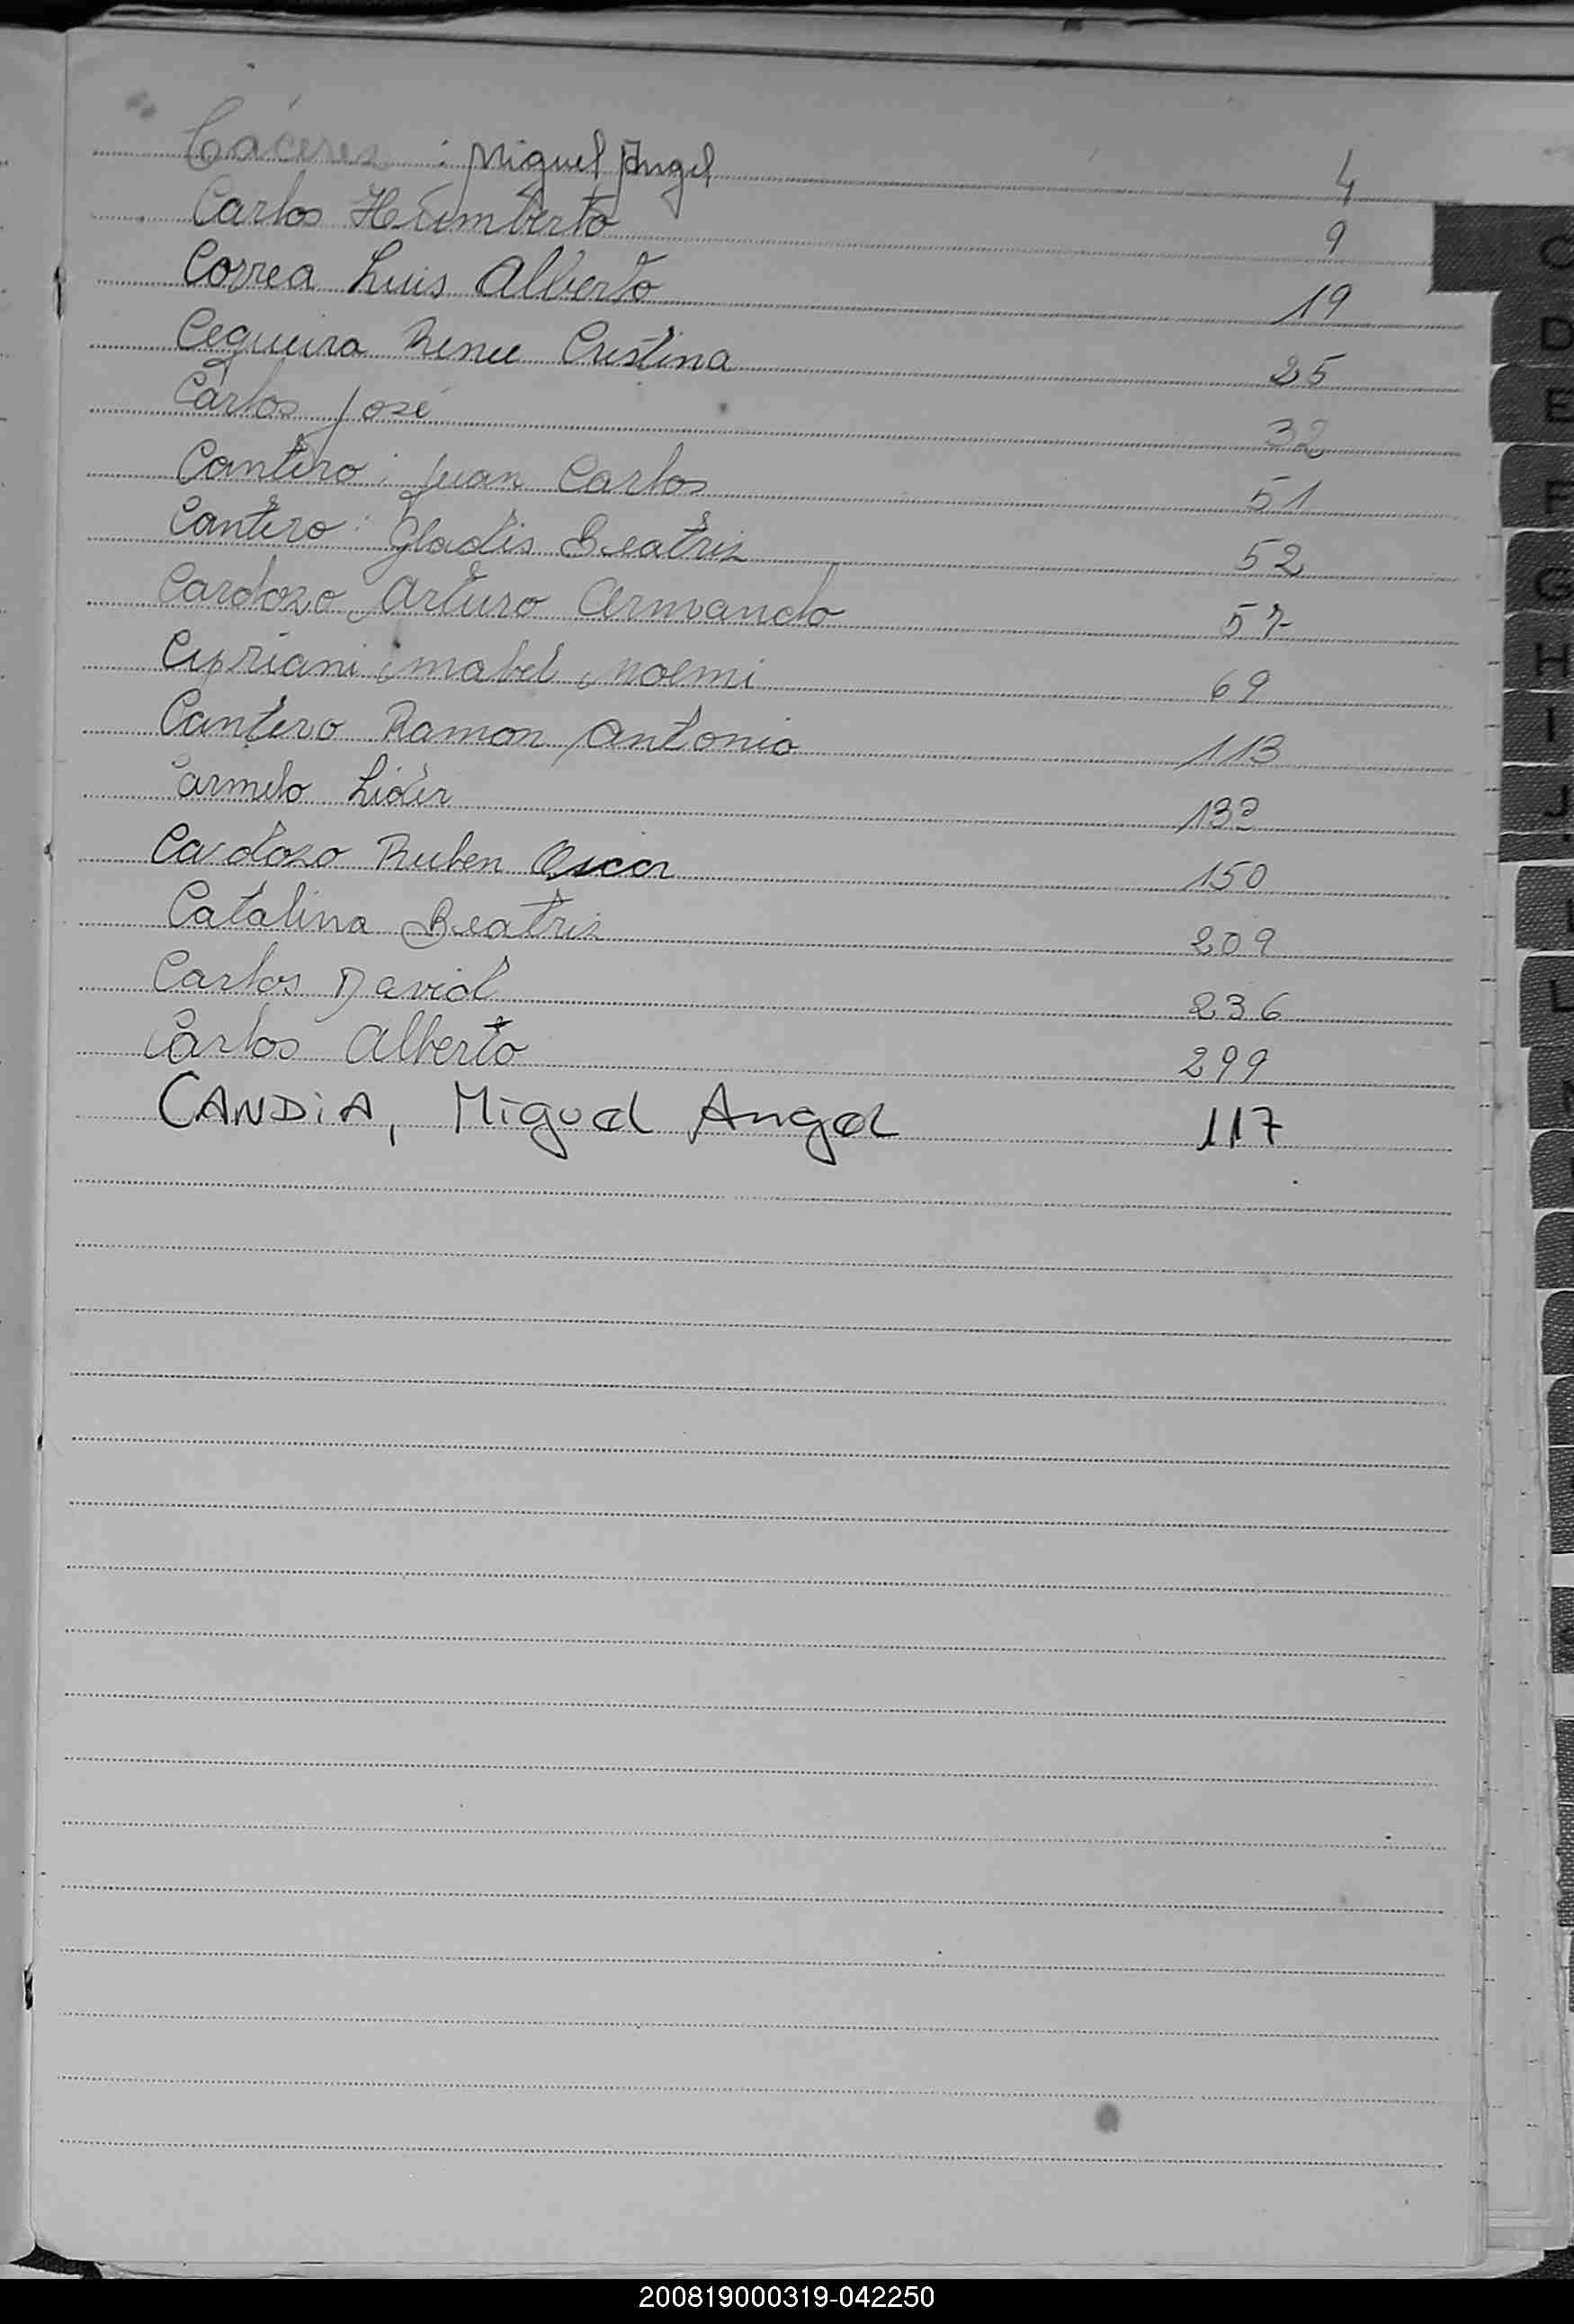 Cáceres : Miguel Angel 4
Carlos Humberto 9
Correa Luis Alberto 19
Cequeira Renee Cristina 25
Carlos José 32
Cantero : Juan Carlos 51
Cantero : Gladis Beatriz 52
Cardozo Arturo Armando 57
Cipriani mabel noemi 69
Cantero Ramon Antonio 113
Carmelo Lider 132
Cardozo Ruben Oscar 150
Catalina Beatriz 209
Carlos David 236
Carlos Alberto 299
CANDiA, Miguel Angel 117
C
D
E
F
G
H
I
J
L
200819000319-042250